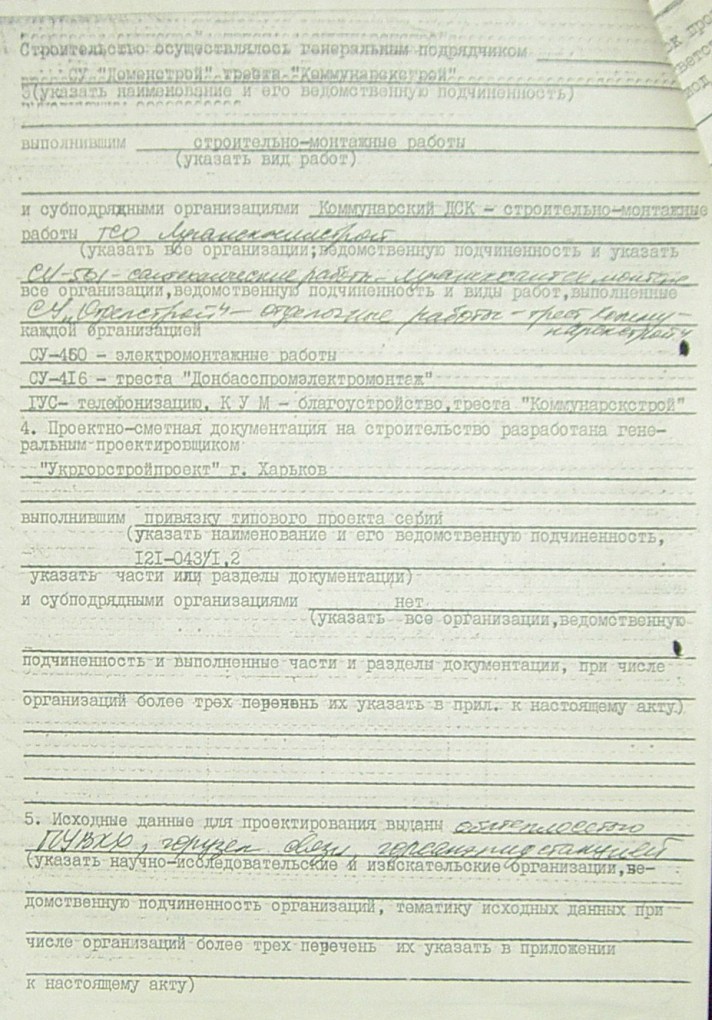 Строительство осуществлялось генеральным подрядчиком
СУ "Доменстрой" треста "Коммунарскстрой"
3(указать наименование и его ведомственную подчиненность)
выполнившим строительно-монтажные работы
(указать вид работ)
и субподрядными организациями Коммунарский ДСК - строительно-монтажные
работы ТСО
(указать все организации;ведомственную подчиненность и указать
СУ-501 - сантехнические работы -
все организации,ведомственную подчиненность и виды работ,выполненные
СУ "Отделстрой" - отделочные работы - трест Комму-
нарскстрой"
каждой организацией
СУ-450 - электромонтажные работы
СУ-416 - треста "Донбасспромэлектромонтаж"
ГУС- телефонизацию, К У М - благоустройство,треста "Коммунарскстрой"
4. Проектно-сметная документация на строительство разработана гене-
ральным проектировщиком
"Укргорстройпроект" г. Харьков
выполнившим привязку типового проекта серий
(указать наименование и его ведомственную подчиненность,
121-043/1,2
указать части или разделы документации)
и субподрядными организациями нет
(указать все организации,ведомственную
подчиненность и выполненные части и разделы документации, при числе
организаций более трех перечень их указать в прил. к настоящему акту)
5. Исходные данные для проектирования выданы
ПУВКХ, горузел связи,
(указать научно-исследовательские и изыскательские организации,ве-
домственную подчиненность организаций, тематику исходных данных при
числе организаций более трех перечень их указать в приложении
к настоящему акту)